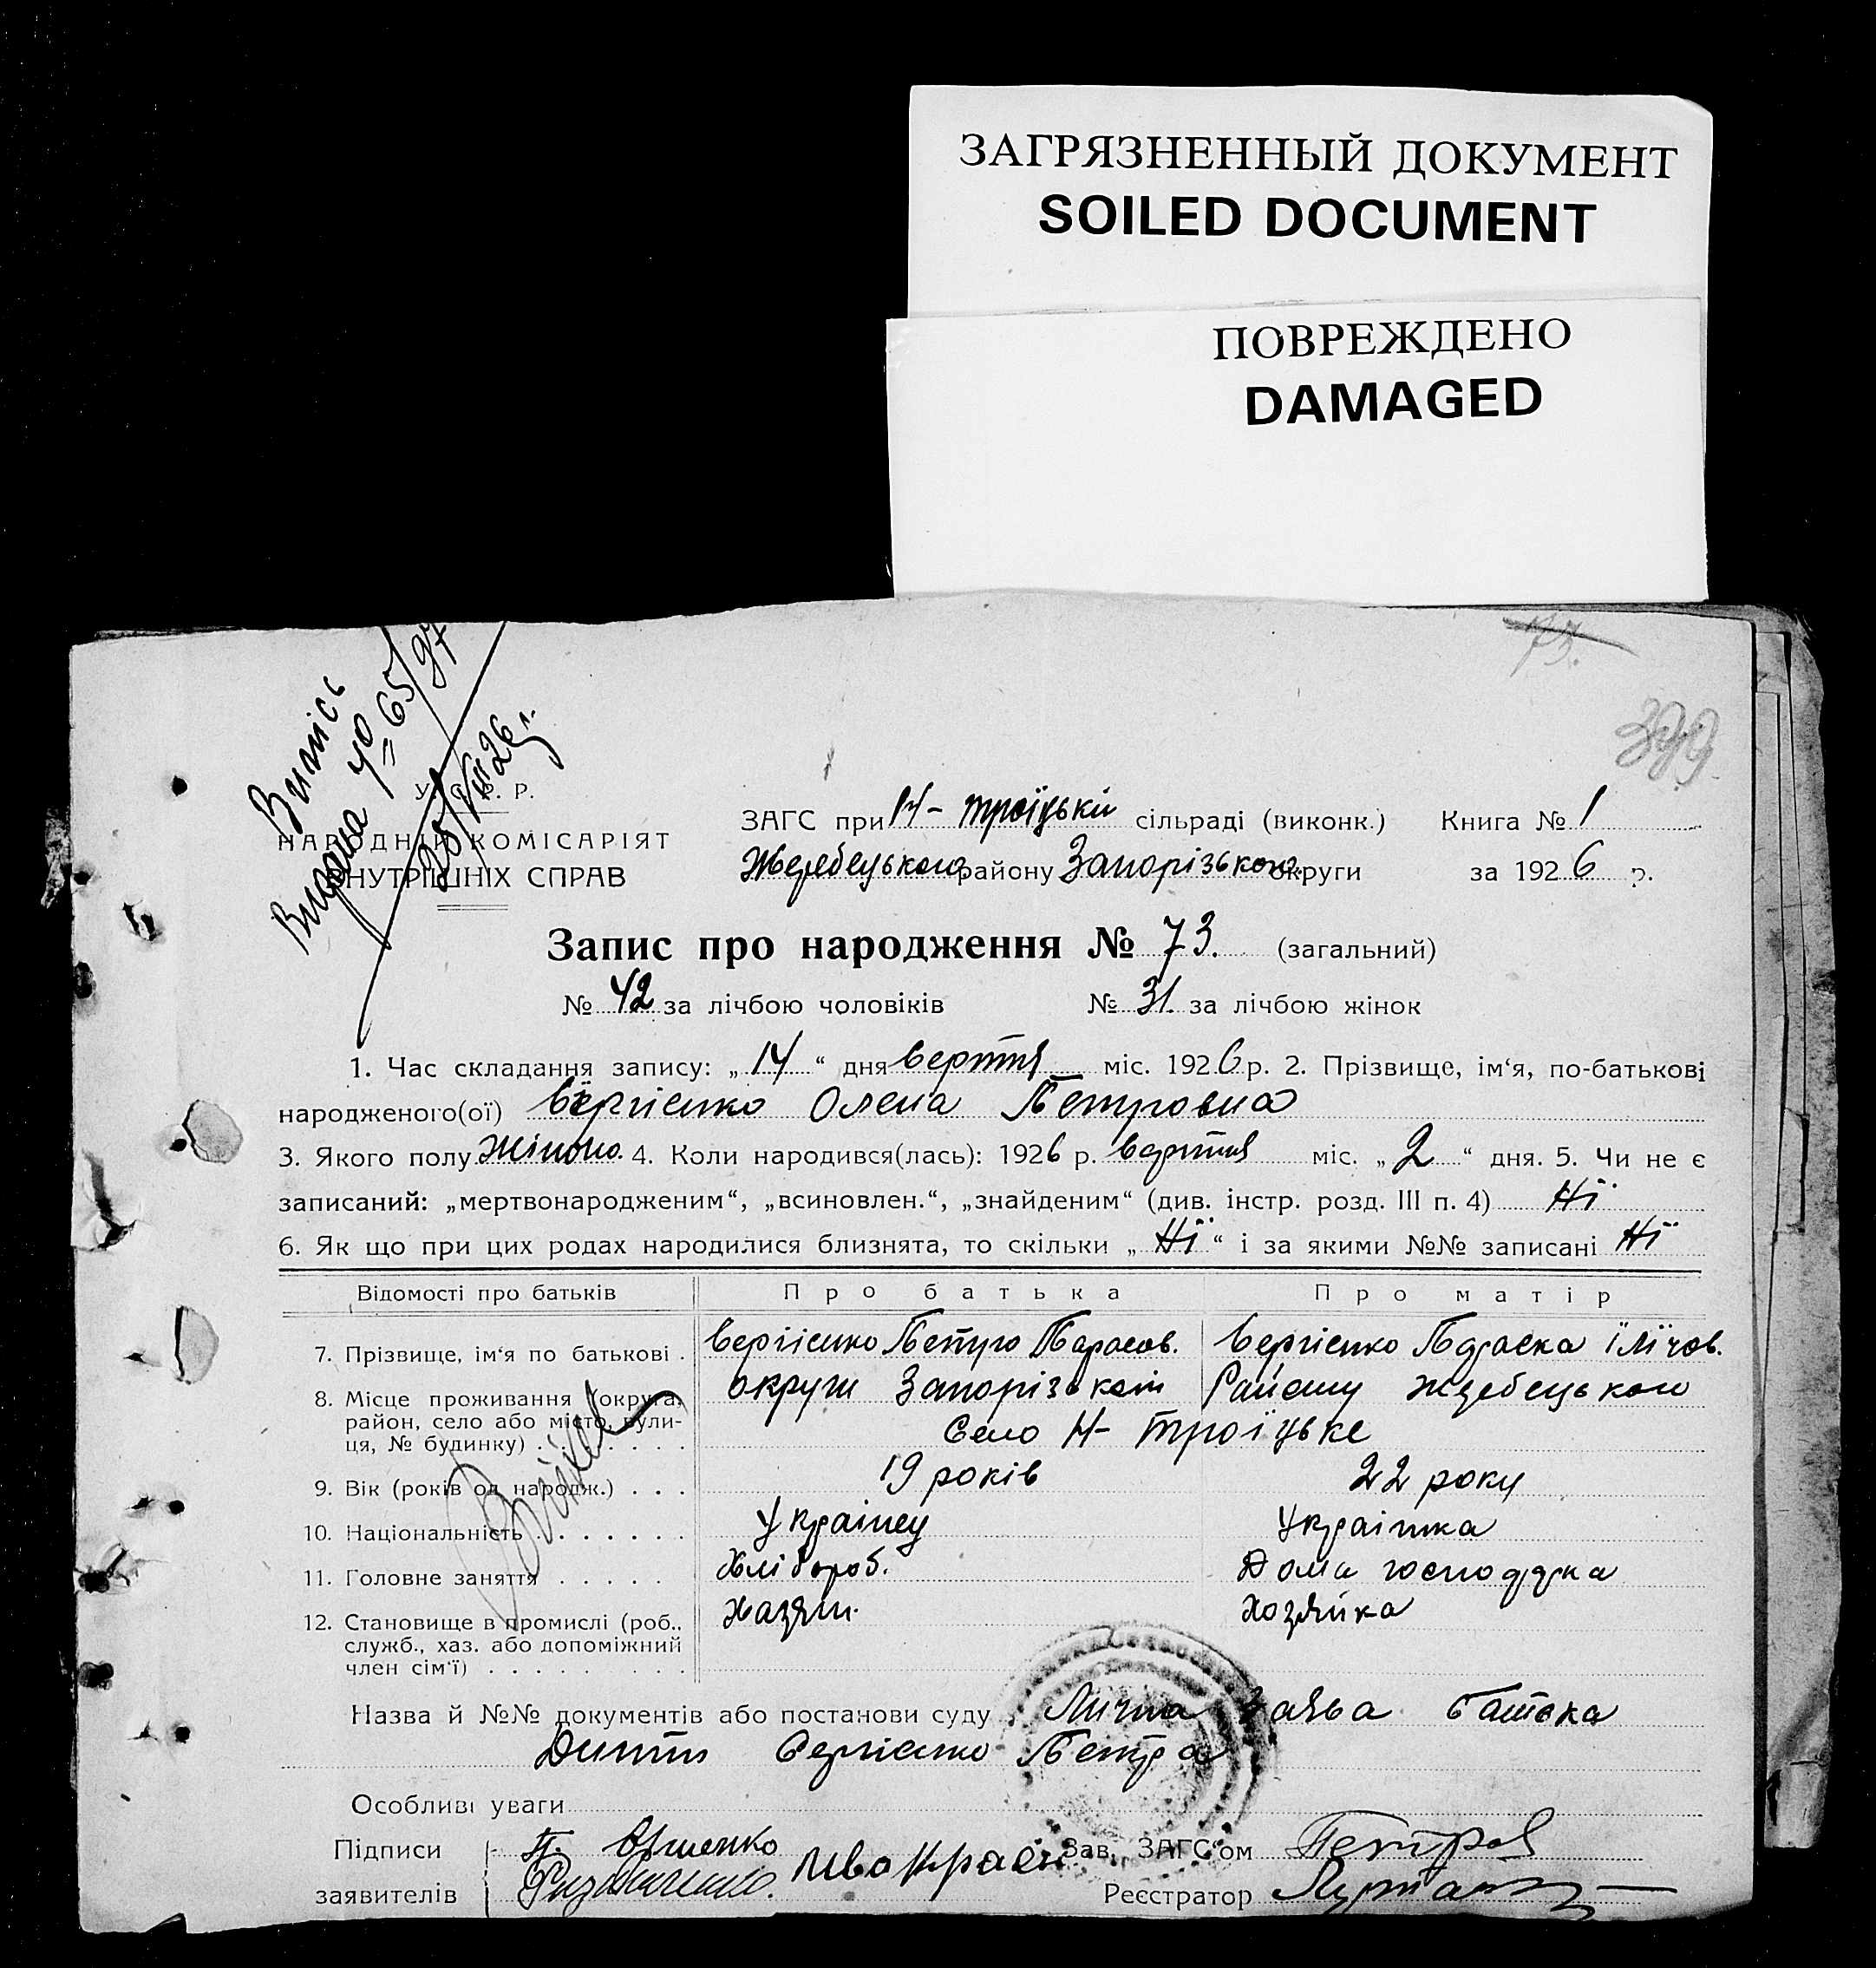 ЗАГРЯЗНЕННЫЙ ДОКУМЕНТ
SOILED DOCUMENT
ПОВРЕЖДЕНО
DAMAGED
73.
399
Випісь
Видана № 65/97
25/VIII 26 г.
У. С. Р. Р.
НАРОДНІЙ КОМІСАРІЯТ
ВНУТРІШНІХ СПРАВ
ЗАГС при Н-Троїцькій сільраді (виконк.) Книга № 1
Жеребецького району Запорізького округи за 1926 р.
Запис про народження № 73. (загальний)
№ 42 за лічбою чоловіків № 31. за лічбою жінок
1. Час складання запису: „14“ дня серпня міс. 1926 р. 2. Прізвище, ім‘я, по-батькові
народженого(ої) Сергієнко Олена Петровна
3. Якого полу Жіночо. 4. Коли народився(лась): 1926 р. серпня міс. „2“ дня. 5. Чи не є
записаний: „мертвонародженим“, „всиновлен.“, „знайденим“ (див. інстр. розд. III п. 4) Ні
6. Як що при цих родах народилися близнята, то скільки „Ні“ і за якими №№ записані Ні
Відомості про батьків Про батька Про матір
7. Прізвище, ім‘я по батькові . Сергієнко Петро Тарасов. Сергієнко Параска Ілічов.
8. Місце проживання (округа, округи Запорізькой Району Жеребецького
район, село або місто, вули-
ця, № будинку) . . . . . . . Село Н-Троїцьке
9. Вік (років од народж.) . . . 19 років 22 року
10. Національність . . . . . . . Українец Українка
11. Головне заняття . . . . . Хлібороб. Дома господарка
12. Становище в промислі (роб., Хазяїн. Хозяйка
служб., хаз. або допоміжний
член сім‘ї) . . . . . . . . .
Назва й №№ документів або постанови суду Лична Заява батька
Дитти Сергієнко Петра
Особливі уваги
Підписи П. Сргиенко Зав. ЗАГС‘ом
заявителів Реєстратор